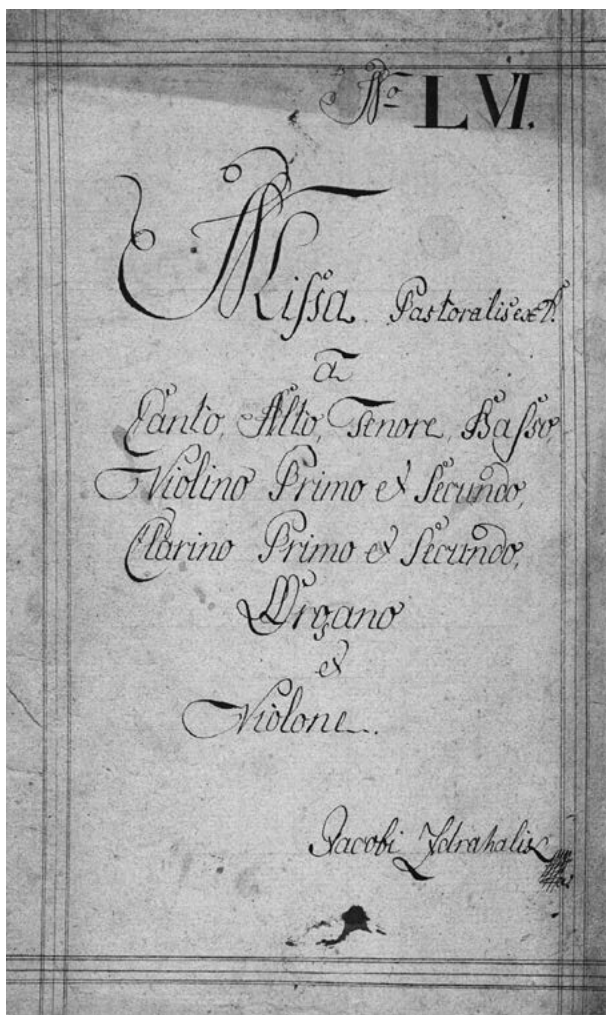 No LVI.
Missa Pastoralis ex D.
a
Canto, Alto, Tenore, Basso,
Violino Primo et Secundo,
Clarino Primo et Secundo,
Organo
et
Violone.
Jacobi